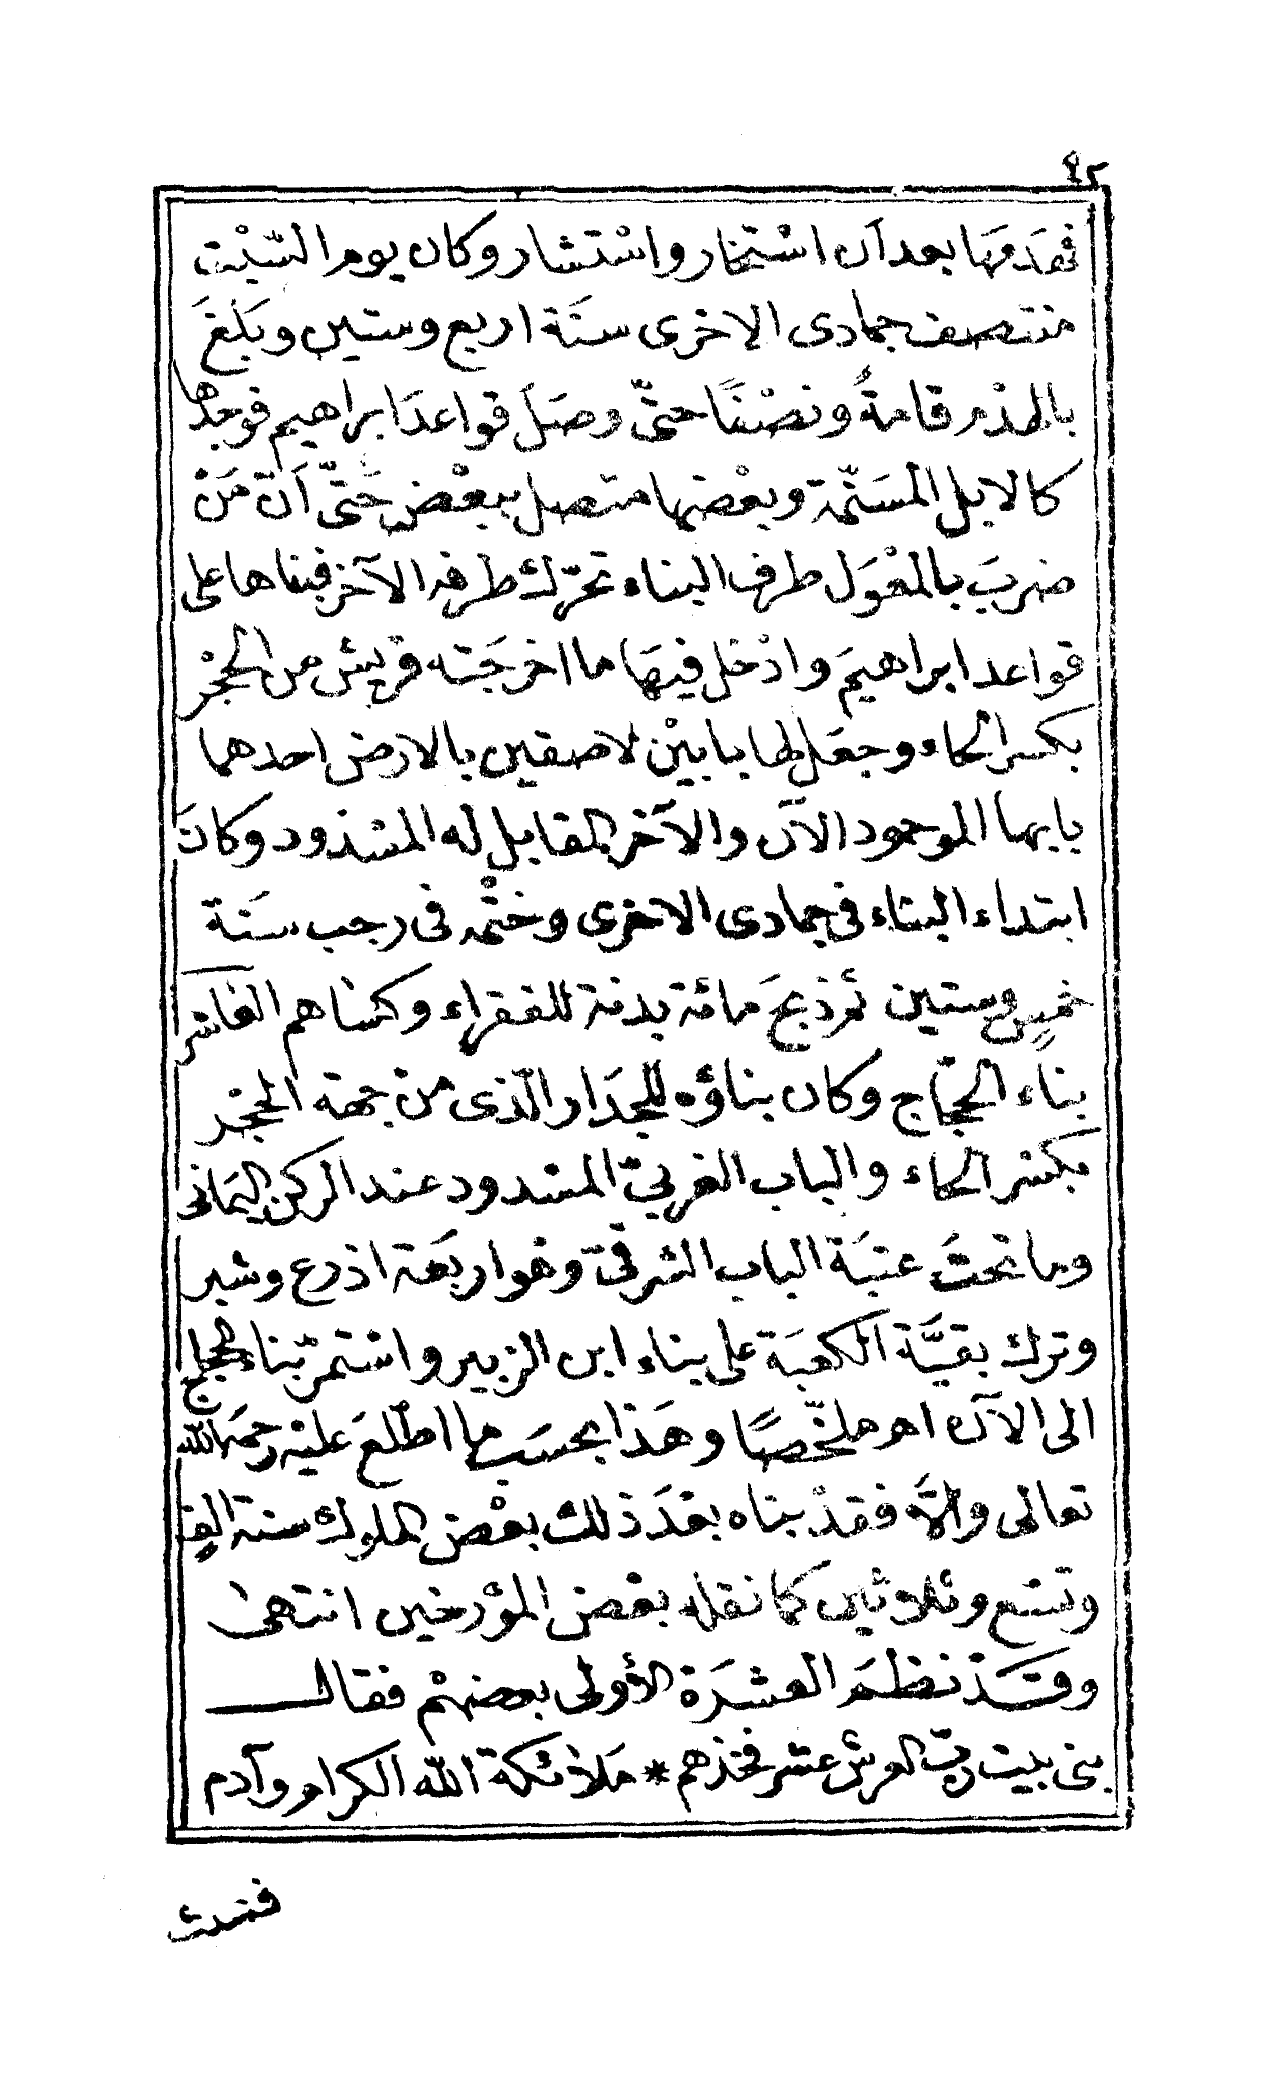 ٤٢
فهَدمَها بعد اَن اسْتخار واسْتشار وكان يوم السّبْت
منتصف جمادى الاخرى سنَة اربع وستين وبَلغَ
بالهذم قامةً ونصْفًا حتّى وصَلَ قواعدَ ابراهيم فوجدها
كالابل المسَنّمة وبعْضها متصل ببعْض حَتّى اَنّ مَنْ
ضربَ بالمعْوَل طرف البناء تحرّك طرفه الآخر فبناها على
قواعد ابراهيمَ وادْخل فيهَا ما اخرجَته قريش من الحِجْر
بكسر الحاء وجعَل لها بابيْن لاصقين بالارض احدهما
بابها الموجود الآن والآخر المقابل له المسْدود وكانَ
ابتداء البناء في جمادى الاخرى وختْمه في رجب سَنة
خمسٍ وستين ثم ذبحَ مائة بدنة للفقراء وكسَاهم العاشر
بناء الحجّاج وكان بناؤه للجدَار الّذى منْ جهة الحجْر
بكسْر الحاء والباب الغربيّ المسْدود عند الركن اليمَانى
وما تحتَ عتبَة الباب الشرقىّ وهُو اربَعة اذرع وشبر
وترك بقيَّة الكعبَة على بناء ابن الزبير واسْتمرّ بناء الحجاج
الى الآن اهـ ملخّصًا وهَذا بحسَب ما اطّلعَ عليْه رحمَه الله
تعالى والّا فقدْ بناه بعْدَ ذلك بعْض الملوك سنة الفٍ
وتسْع وثلاثين كما نقله بعْض المؤرخين انتهىٰ
وقَدْ نظمَ العشرَة الأولى بعضهمْ فقال
بنى بيت ربّ العرش عشر فخذهم * ملائكة الله الكرام وآدم
فشيث